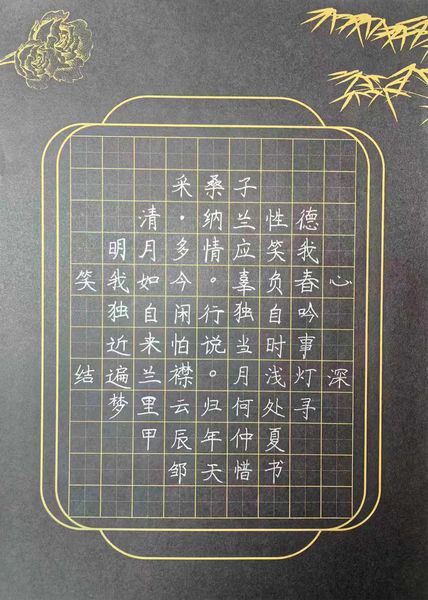 采桑子
清·纳兰性德
明月多情应笑我
笑我如今。辜负春心
独自闲行独自吟
近来怕说当时事
结遍兰襟。月浅灯深
梦里云归何处寻
甲辰年仲夏
邹天惜书